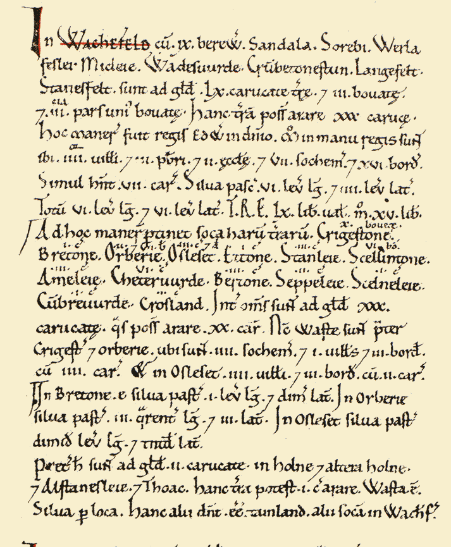 In WACHEFELD cū. ix. berew̄. Sandala. Sorebi. Werla
feslei. Micleie. Wadesuurde. Crūbetonestun. Langefelt.
Stanesfelt. sunt ad gld̄. lx. carucate træ. 7 iii. bouate.
7 iii. pars uni bouate. hanc t̄ra poss̄ arare xxx caruce.
hoc maner̄ fuit regis Edw in dñio. m̊ in manu regis suñ
ibi. iiii. uilli. 7 iii. pbr̄i. 7 ii. ecclę. 7 vii. sochem̄. 7 xvi. bord̄.
Simul hñt. vii. car̄. Silua past̄. vi. lev̄ lḡ. 7 iiii. lev̄ lat̄.
Totū vi. lev̄ lḡ. 7 vi. lev̄ lat̄. T.R.E. lx. lib. ual̄. m̊. xv. lib.
Ad hoc maner̄ ptinet soca harū t̄rarū. Crigestone.
Bretone. Orberie. Osleset. Ettone. Stanleie. Scellintone.
Ameleie. Cheteruurde. Bertone. Seppeleie. Scelneleie.
Cūbreuurde. Crosland. Int om̄s suñ ad gld̄ xxx.
carucate. q̄s poss̄ arare. xx. car̄. Nc̄ Wastę suñ pter
Crigest̄ 7 orberie. ubi suñ. iiii. sochem̄. 7 i. uill's 7 iii. bord̄.
cū iiii. car̄. & in Osleset. iiii. uilli. 7 iii. bord̄. cū. ii. car̄.
In Bretone. e silua past̄. i. lev̄ lḡ. 7 dim̄ lat̄. In Orberie
silua past̄. iii. qrent̄ lḡ. 7 iii. lat̄. In Osleset silua past̄
dimid̄ lev̄ lḡ. 7 tntd̄ lat̄.
Pret̄ h̄ suñ ad gld̄. ii. carucate. in holne 7 altera holne.
7 Alstanesleie. 7 Thoac. hanc t̄ra potest. i. c̄ arare. Wasta ē.
Silua p loca. hanc alii dn̄t. ēē tainland. alii socā in Wachf̄.